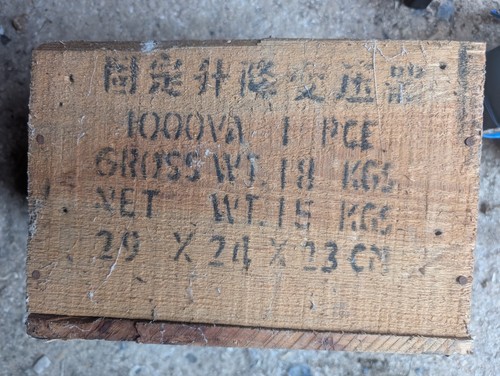 固定升降变压器
1000VA 1 PCE.
GROSS WT. 18 KGS.
NET WT. 15 KGS
29 X 24 X 23 CM